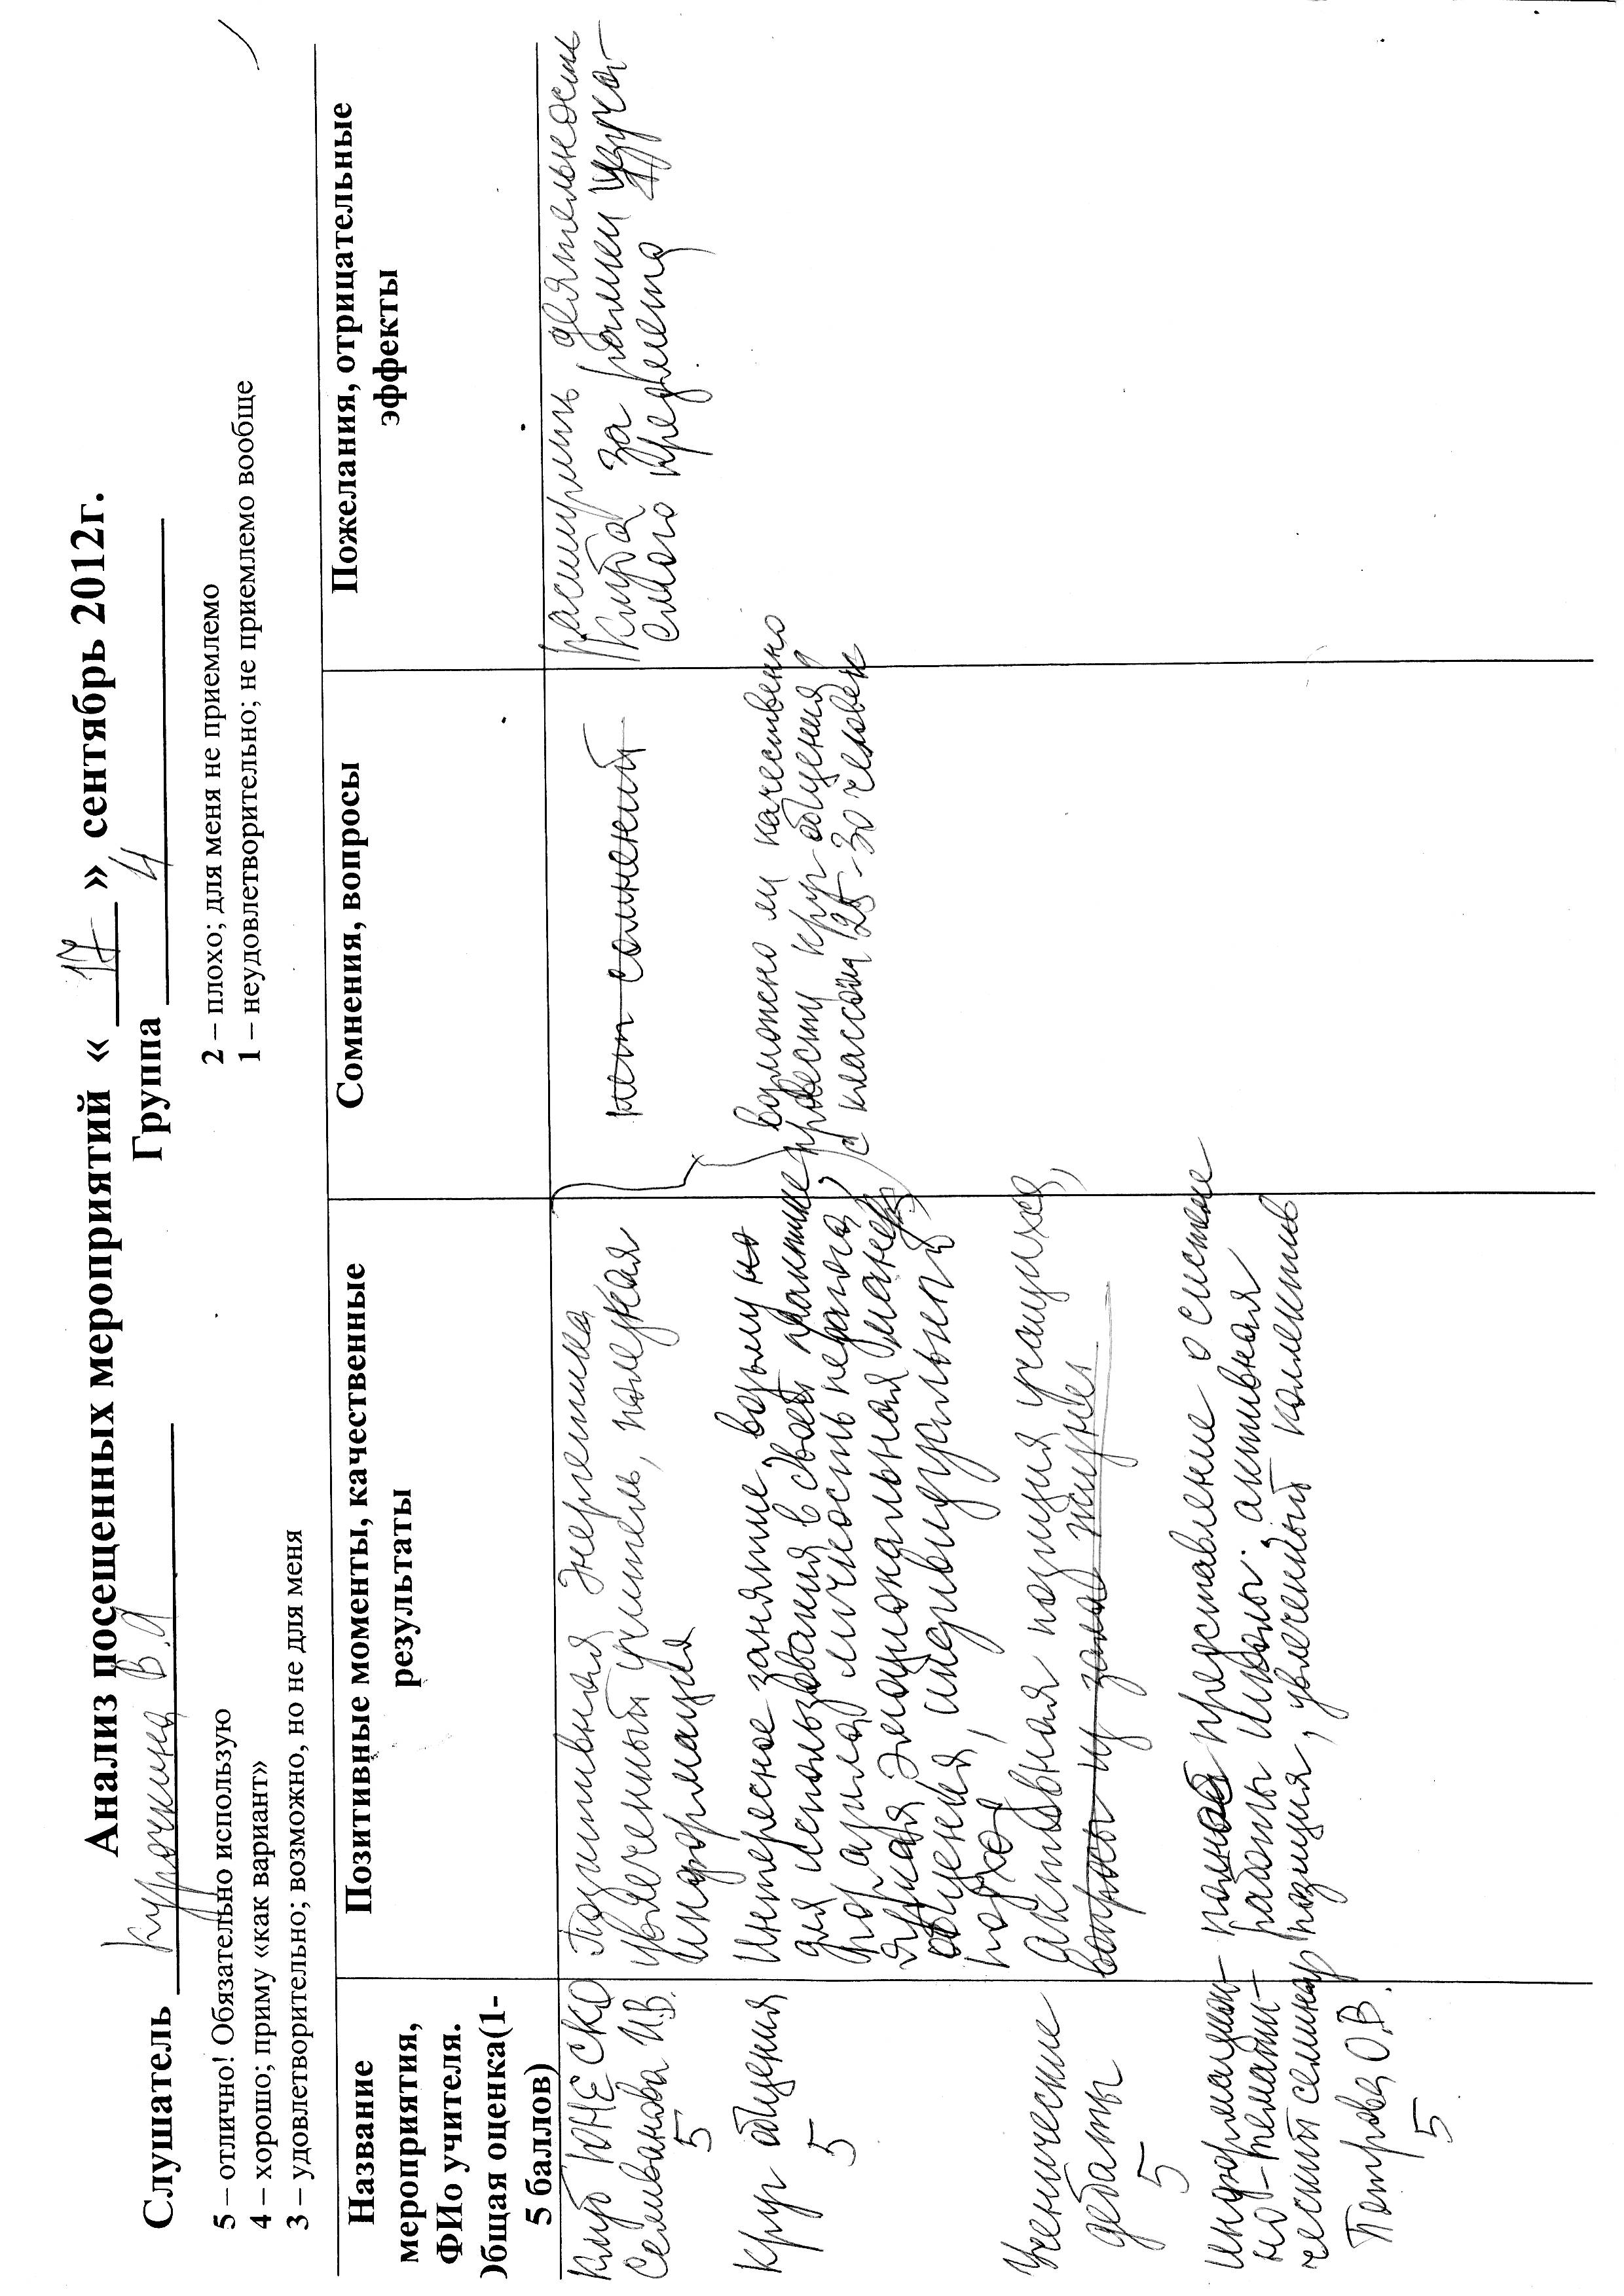 Анализ посещенных мероприятий « 17 » сентябрь 2012г.
Слушатель Курочкина В.А Группа 4
5 – отлично! Обязательно использую
4 – хорошо; приму «как вариант»
3 – удовлетворительно; возможно, но не для меня
2 – плохо; для меня не приемлемо
1 – неудовлетворительно; не приемлемо вообще
Название
мероприятия,
ФИо учителя.
Общая оценка(1-
5 баллов)
Позитивные моменты, качественные
результаты
Сомнения, вопросы
Пожелания, отрицательные
эффекты
Клуб ЮНЕСКО
Селиванова И.В.
5
Позитивная энергетика,
увлеченный учитель, полезная
информация
нет сомнений
расширить деятельность
клуба за рамки изучае-
мого предмета
Круг общения
5
Интересное занятие, возьму
для использования в своей практике,
поразила личность педагога,
яркая эмоциональная манера
общения, индивидуальный
подход
возможно ли качественно
провести круг общения
с классом 25-30 человек
Ученические
дебаты
5
Активная позиция учащихся,
вопросы из зала жизнь
Информацион-
но-темати-
ческий семинар
Петрова О.В.
5
полное представление о системе
работы школы. активная
позиция, увлеченный коллектив